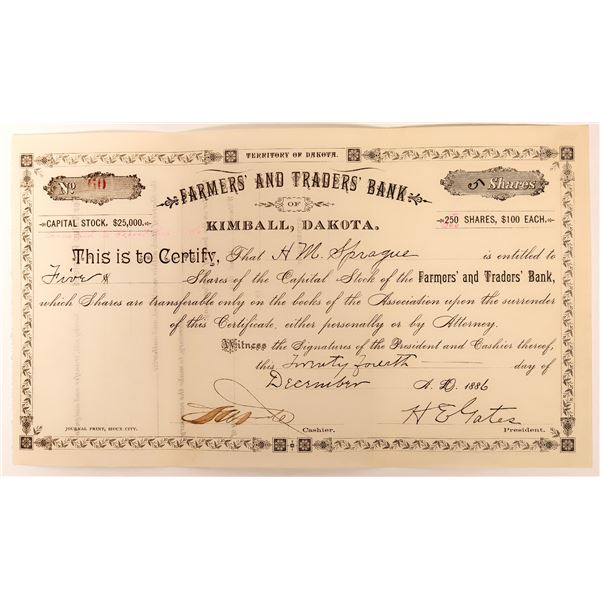 TERRITORY OF DAKOTA.
No 60
FARMERS' AND TRADERS' BANK
5 Shares
OF
CAPITAL STOCK, $25,000.
KIMBALL, DAKOTA.
250 SHARES, $100 EACH.
This is to Certify, That H M Sprague is entitled to
Five Shares of the Capital Stock of the Farmers' and Traders' Bank,
which Shares are transferable only on the books of the Association upon the surrender
of this Certificate, either personally or by Attorney.
Witness the Signatures of the President and Cashier thereof,
this Twenty fourth day of
December A.D. 1886
H E Gates
JOURNAL PRINT, SIOUX CITY.
Cashier.
President.